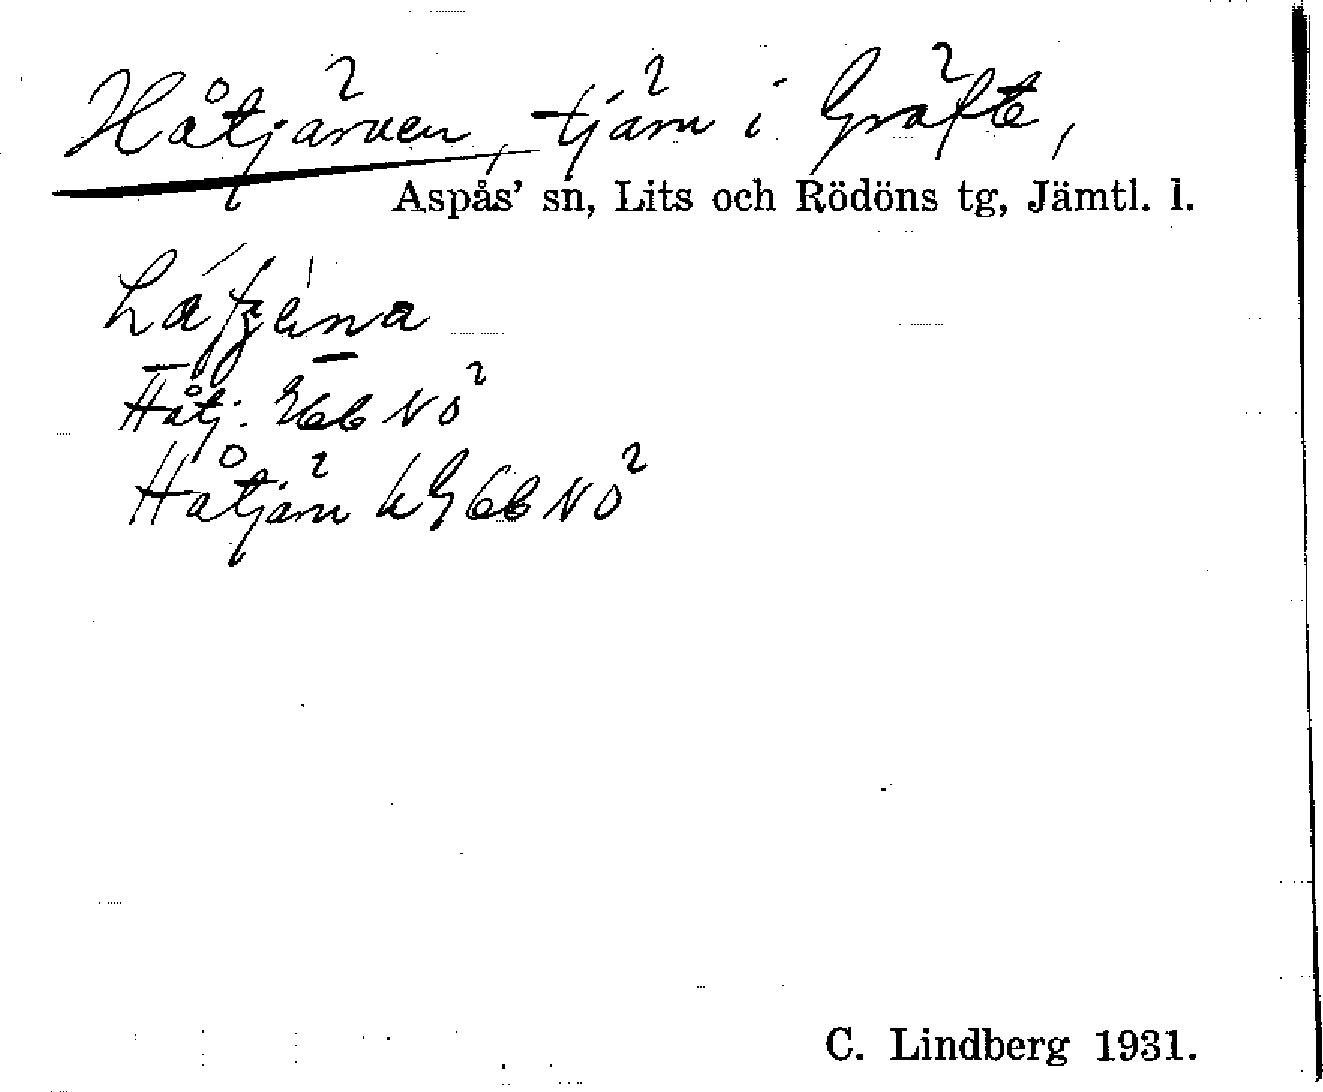 Håtjärnen, tjärn i Gräfte,
Aspås' sn, Lits och Rödöns tg, Jämtl. l.
Håtj. 266 NO
Håtjärn
C. Lindberg 1931.